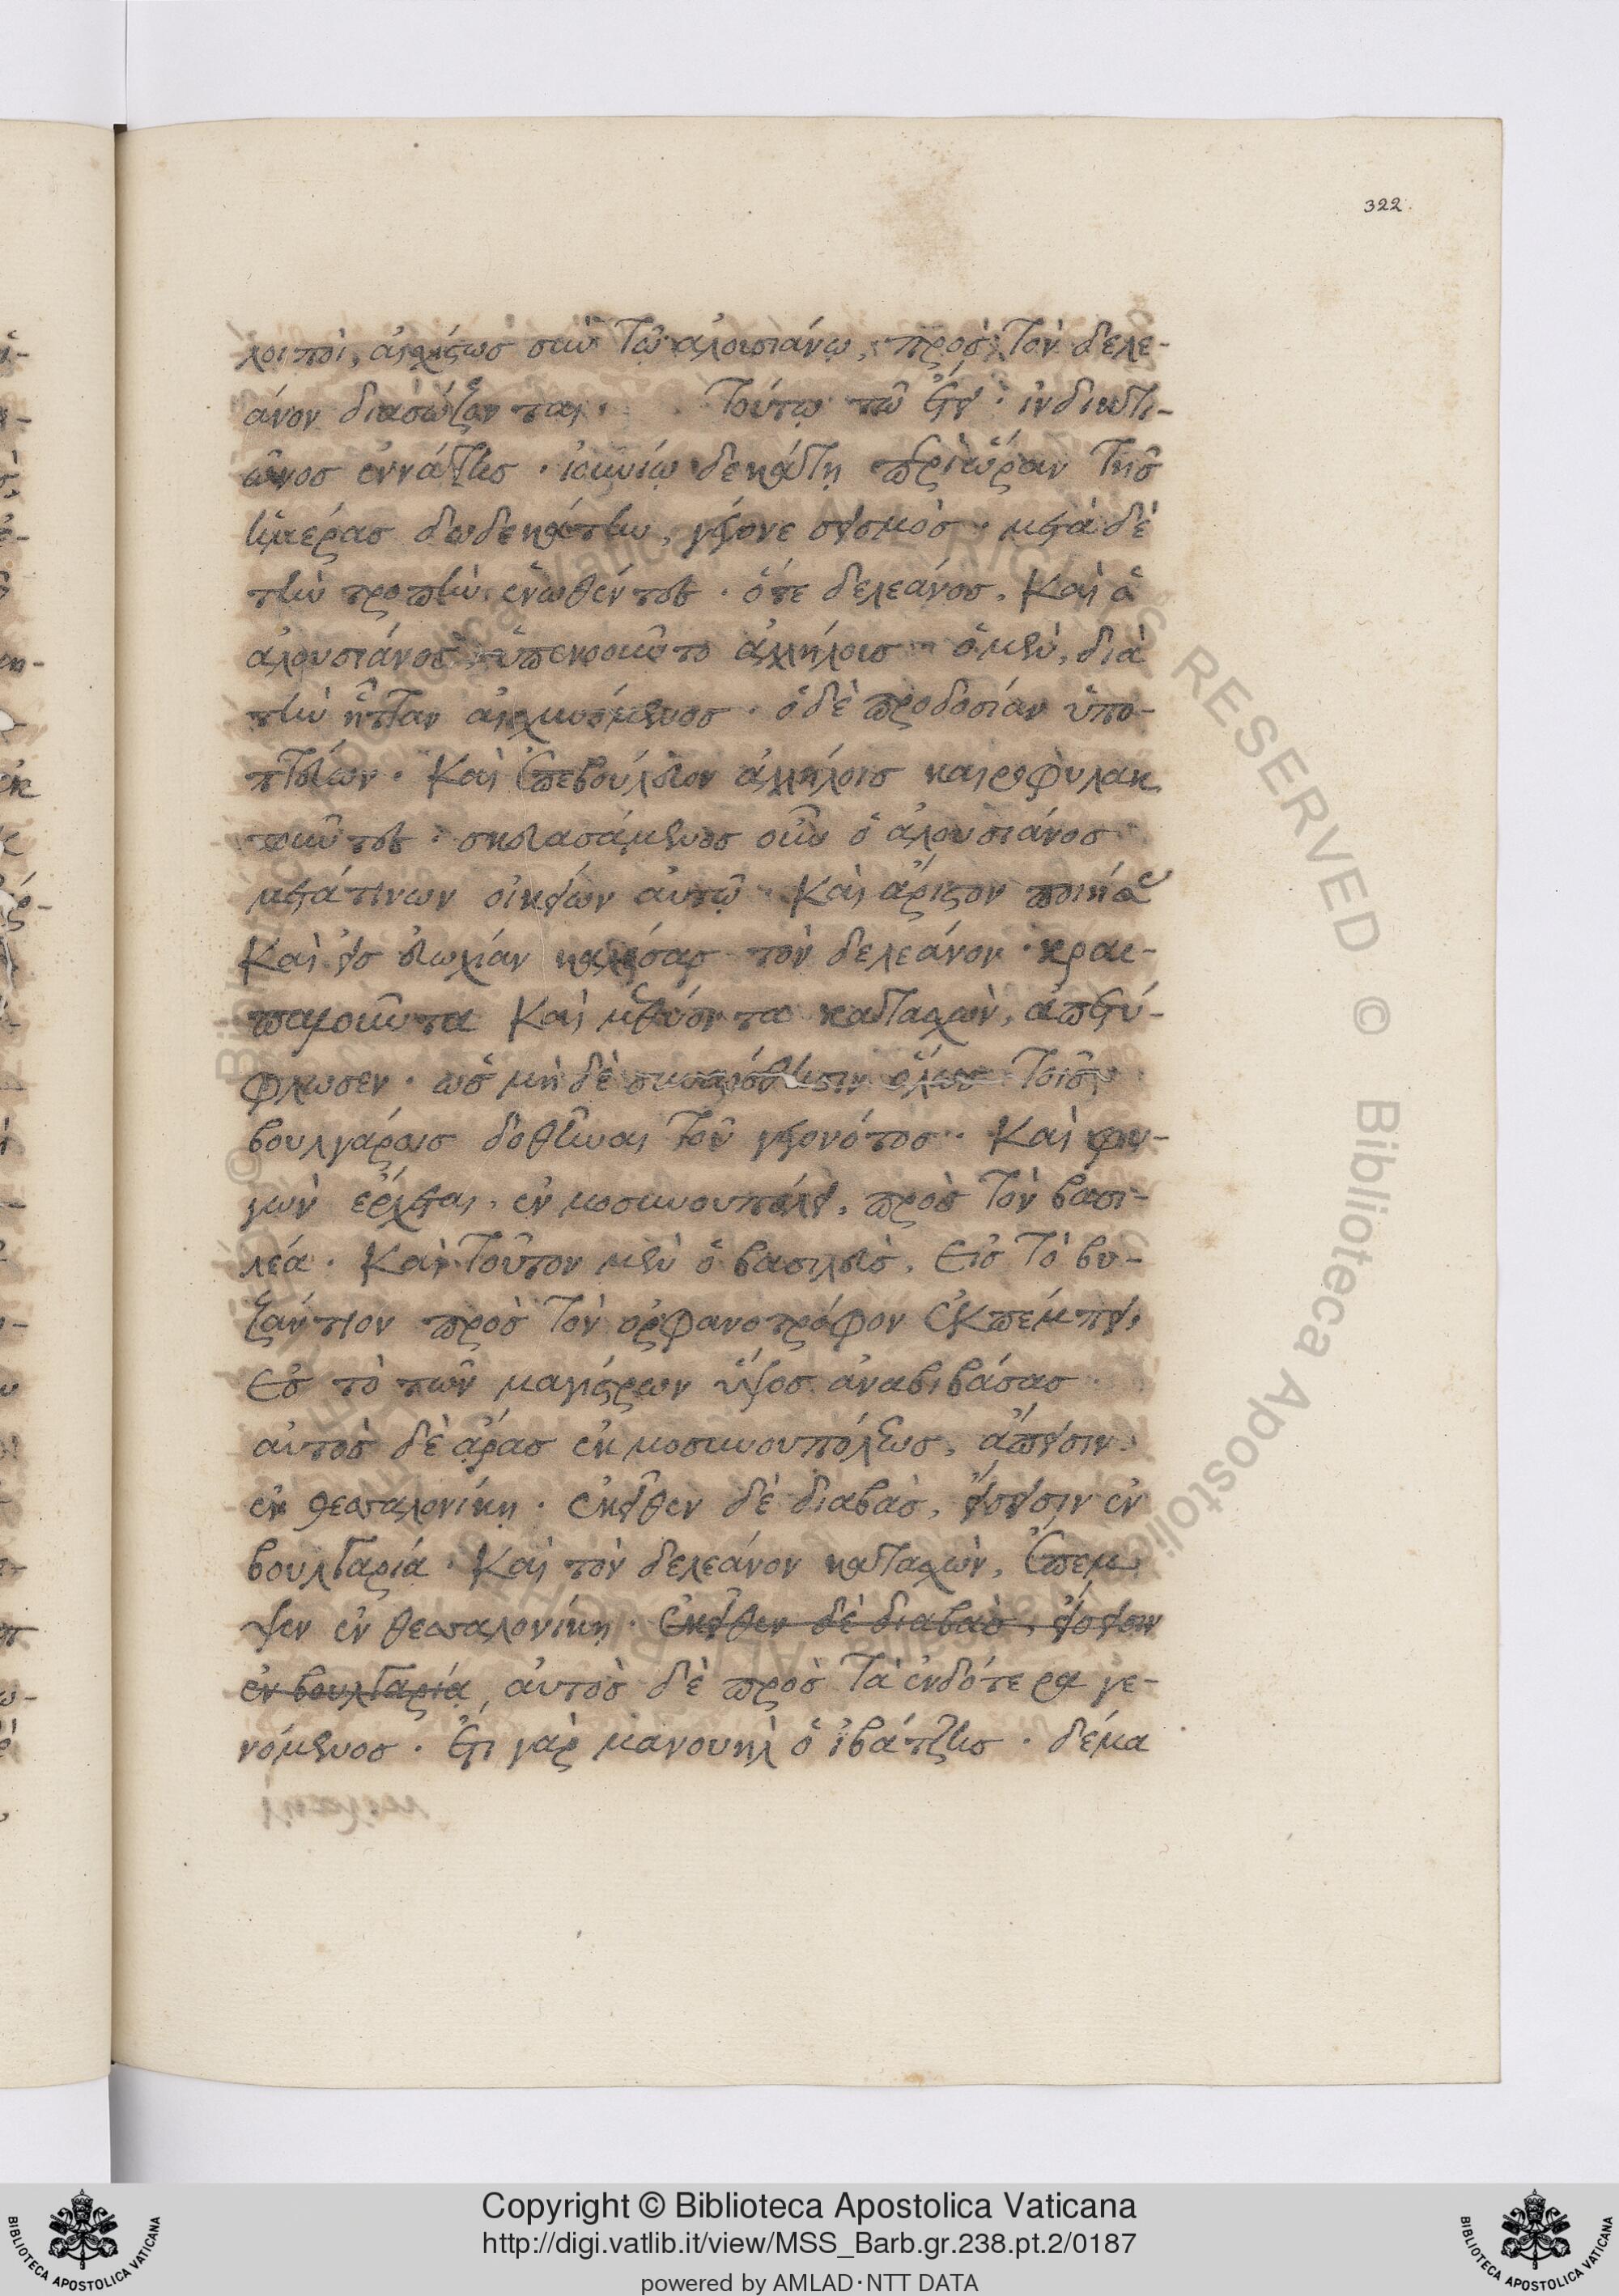 322
λοιποὶ, αἰσχίστως σὺν τῷ ἀλουσιάνῳ, πρὸς τὸν δελε-
άνον διασώζονται. Τούτῳ τῷ ἔτει. ἰνδικτι-
ῶνος ἐννάτης. ἰουνίῳ δεκάτῃ περὶ ὥραν τῆς
ἡμέρας δωδεκάτην, γέγονε σεισμός. μετὰ δὲ
τὴν τροπὴν ἑνωθέντες. ὅτε δελεάνος, Καὶ ὁ
ἀλουσιάνος, ὑπενοοῦντο ἀλλήλοις ὁ μὲν, διὰ
τὴν ἧτταν αἰσχυνόμενος. ὁ δὲ προδοσίαν ὑπο-
πτεύων. Καὶ ἐπεβούλευον ἀλλήλοις καιροφυλακ
τοῦντες. σκευασάμενος οὖν ὁ ἀλουσιάνος
μετά τινων οἰκείων αὐτῷ. Καὶ ἄριστον ποιήσας
Καὶ εἰς εὐωχίαν καλέσας τὸν δελεάνον. κραι-
παλοῦντα Καὶ μεθύοντα κατασχὼν, ἀπετύ-
φλωσεν. ὡς μὴ δὲ συναίσθησιν ὅλως τοῖς
βουλγάροις δοθῆναι τοῦ γεγονότος. Καὶ φυ-
γὼν ἔρχεται, ἐν μοσυνουπόλει, πρὸς τὸν βασι-
λέα. Καὶ τοῦτον μὲν ὁ βασιλεὺς, εἰς τὸ βυ-
ζάντιον πρὸς τὸν ὀρφανοτρόφον ἐκπέμπει,
ἐς τὸ τῶν μαγίστρων ὕψος ἀναβιβάσας.
αὐτὸς δὲ ἄρας ἐκ μοσυνουπόλεως, ἄπεισιν.
ἐν θεσσαλονίκῃ. ἐκεῖθεν δὲ διαβὰς, εἴσεισιν ἐν
βουλγαρίᾳ. Καὶ τὸν δελεάνον κατασχὼν, ἔπεμ
ψεν ἐν θεσσαλονίκῃ. ἐκεῖθεν δὲ διαβὰς, εἴσεισιν
ἐν βουλγαρίᾳ, αὐτὸς δὲ πρὸς τὰ ἐνδότερα γε-
νόμενος. ἔτι γὰρ μανουὴλ ὁ ἰβάτζης. δέμα
Copyright © Biblioteca Apostolica Vaticana
http://digi.vatlib.it/view/MSS_Barb.gr.238.pt.2/0187
powered by AMLAD·NTT DATA